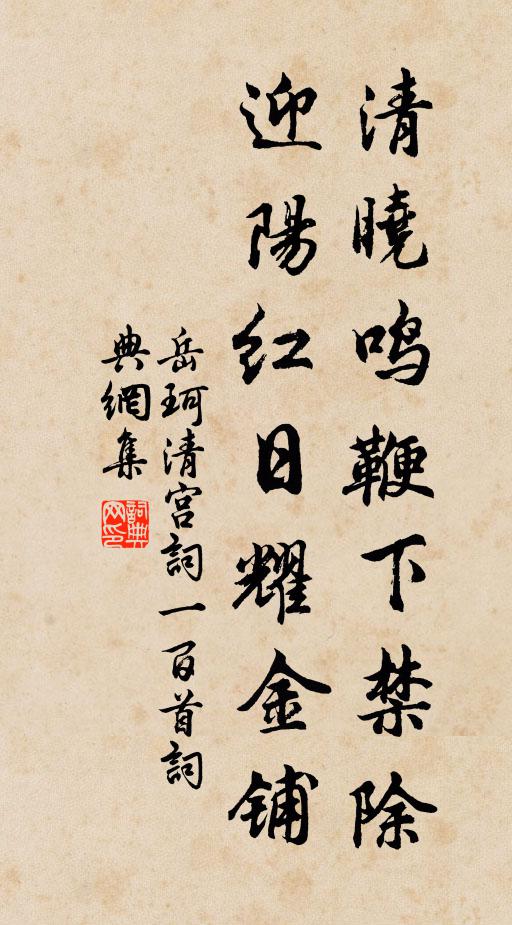 清曉鸣鞭下禁除
迎陽红日耀金铺
岳珂清宫詞一百首詞
典網集
詞典网印